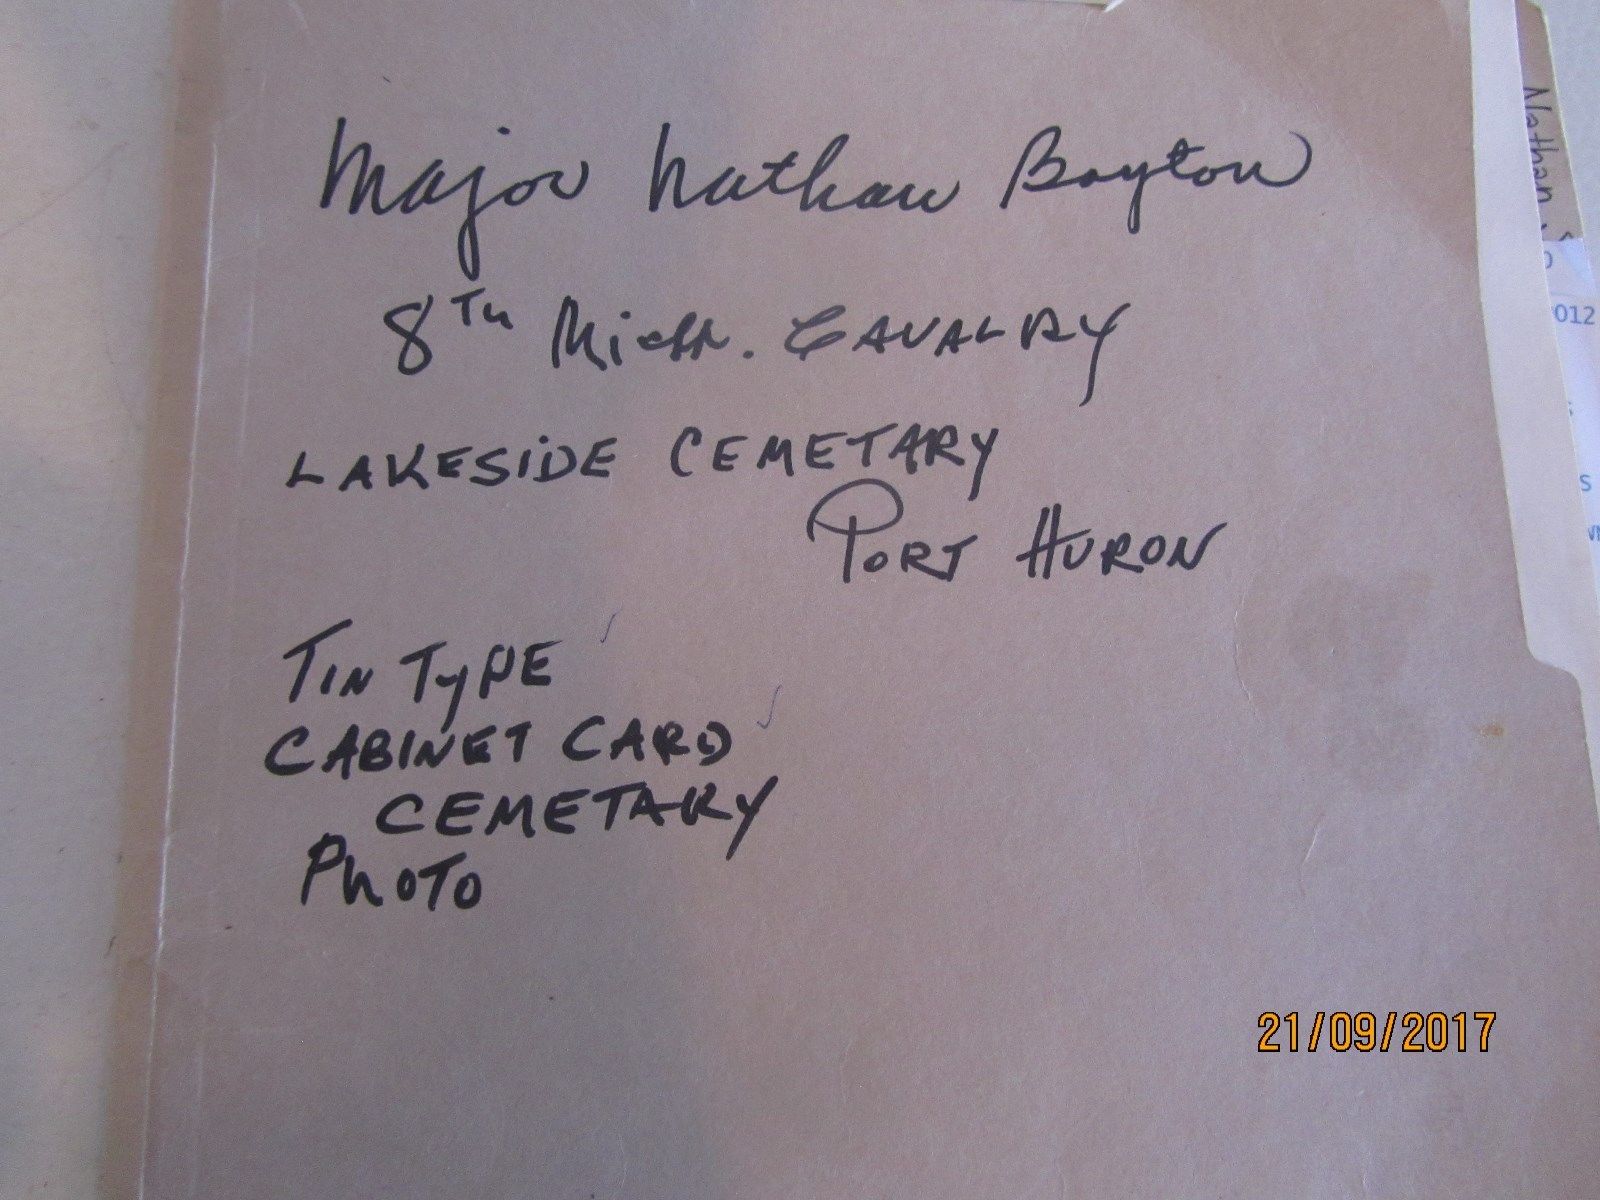 Major Nathan Boyton
8TH Mich. CAVALRY
LAKESIDE CEMETARY
PORT HURON
TIN TYPE
CABINET CARD
CEMETARY
PHOTO
Nathan
012
S
21/09/2017